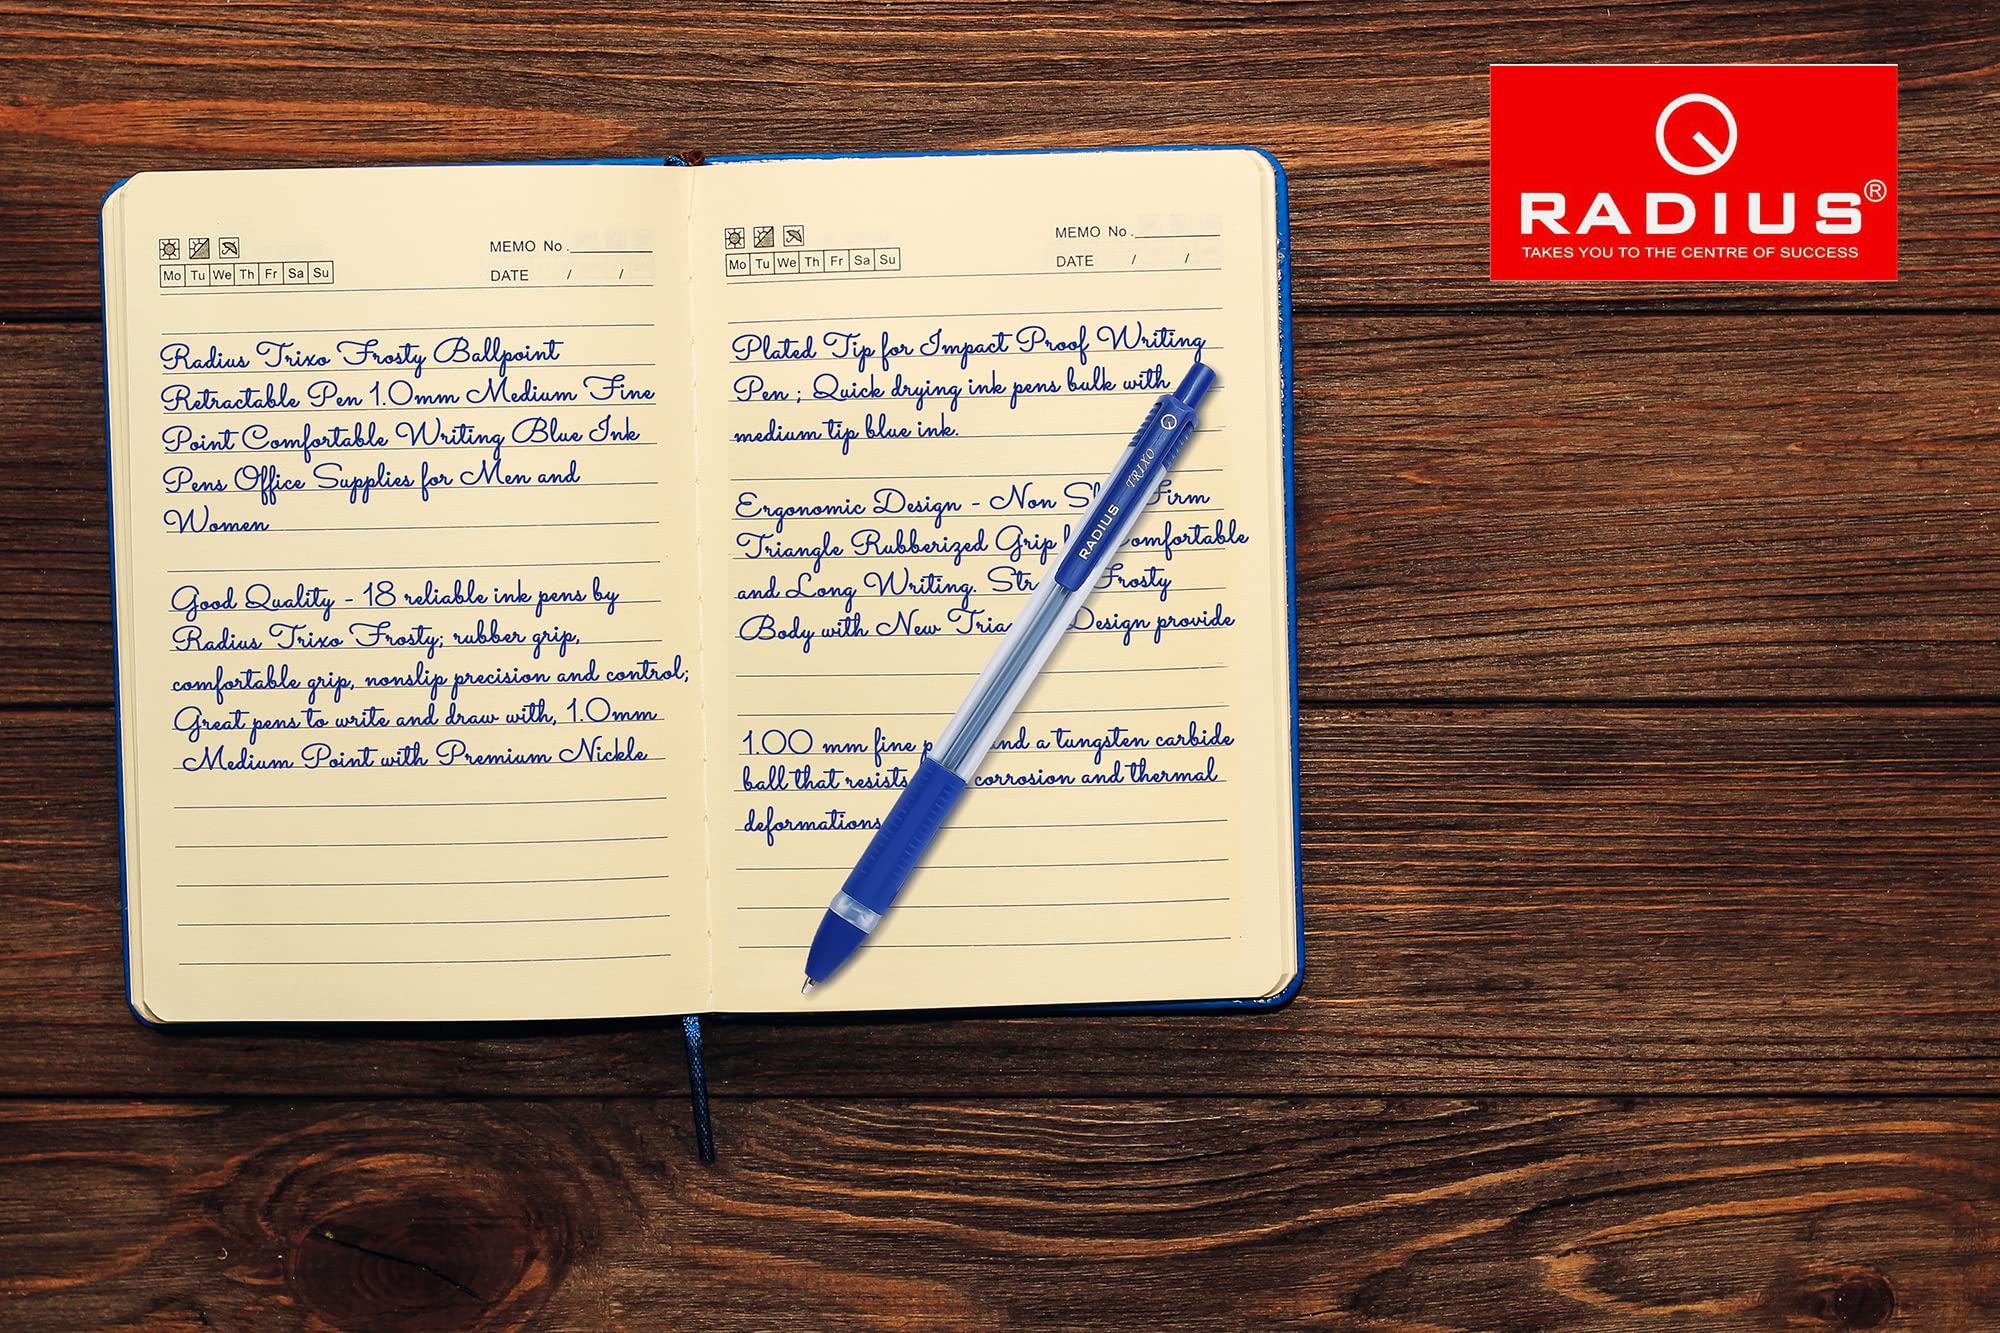 RADIUS®
TAKES YOU TO THE CENTRE OF SUCCESS
MEMO No.
Mo Tu We Th Fr Sa Su
DATE / /
Radius Trixo Frosty Ballpoint
Retractable Pen 1.0mm Medium Fine
Point Comfortable Writing Blue Ink
Pens Office Supplies for Men and
Women
Good Quality - 18 reliable ink pens by
Radius Trixo Frosty; rubber grip,
comfortable grip, nonslip precision and control;
Great pens to write and draw with, 1.0mm
Medium Point with Premium Nickle
MEMO No.
Mo Tu We Th Fr Sa Su
DATE / /
Plated Tip for Impact Proof Writing
Pen ; Quick drying ink pens bulk with
medium tip blue ink.
Ergonomic Design - Non Firm
Triangle Rubberized Grip comfortable
and Long Writing. Frosty
Body with New Design provide
1.00 mm fine and a tungsten carbide
ball that resists corrosion and thermal
deformations
RADIUS TRIXO